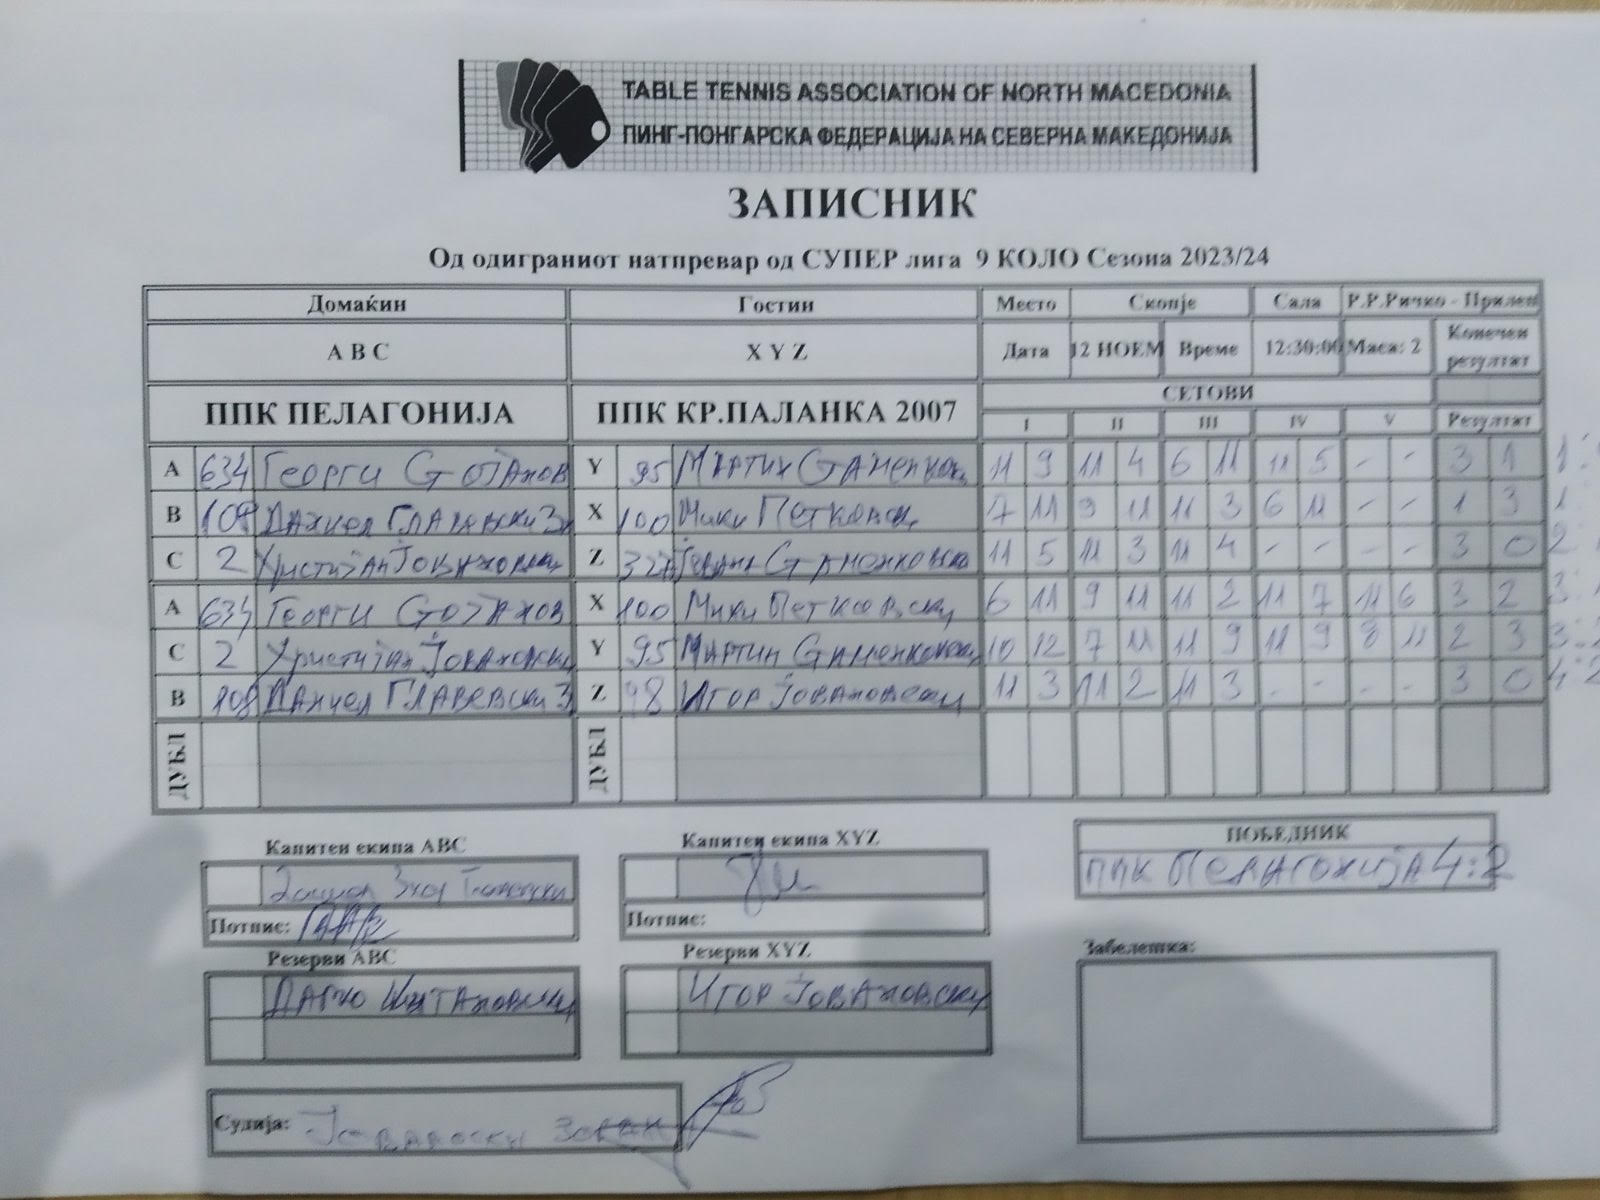 TABLE TENNIS ASSOCIATION OF NORTH MACEDONIA
ПИНГ-ПОНГАРСКА ФЕДЕРАЦИЈА НА СЕВЕРНА МАКЕДОНИЈА
ЗАПИСНИК
Од одиграниот натпревар од СУПЕР лига 9 КОЛО Сезона 2023/24
Домаќин Гостин Место Скопје Сала Р.Р.Ричко - Прилеп
A B C X Y Z Дата 12 НОЕМ Време 12:30:00 Маса: 2 Конечен резултат
ППК ПЕЛАГОНИЈА ППК КР.ПАЛАНКА 2007 СЕТОВИ
I II III IV V Резултат
A 634 Георги Стојанов Y 95 Мартин Стаменковски 11 9 11 4 6 11 11 5 - - 3 1 1:
B 108 Даниел Главевски З X 100 Мики Петковски 7 11 9 11 11 3 6 11 - - 1 3 1:
C 2 Христијан Јовановски Z Стаменковски 11 5 11 3 11 4 - - - - 3 0 2:
A 634 Георги Стојанов X 100 Мики Петковски 6 11 9 11 11 2 11 7 11 6 3 2 3:
C 2 Христијан Јовановски Y 95 Мартин Стаменковски 10 12 7 11 11 9 11 9 8 11 2 3 3:2
B 108 Даниел Главевски З Z 98 Игор Јовановски 11 3 11 2 11 3 - - - - 3 0 4:2
ДУБЛ ДУБЛ
Капитен екипа ABC Капитен екипа XYZ ПОБЕДНИК
ППК Пелагонија 4:2
Потпис: Потпис:
Резерви ABC Резерви XYZ Забелешка:
Игор Јовановски
Судија: